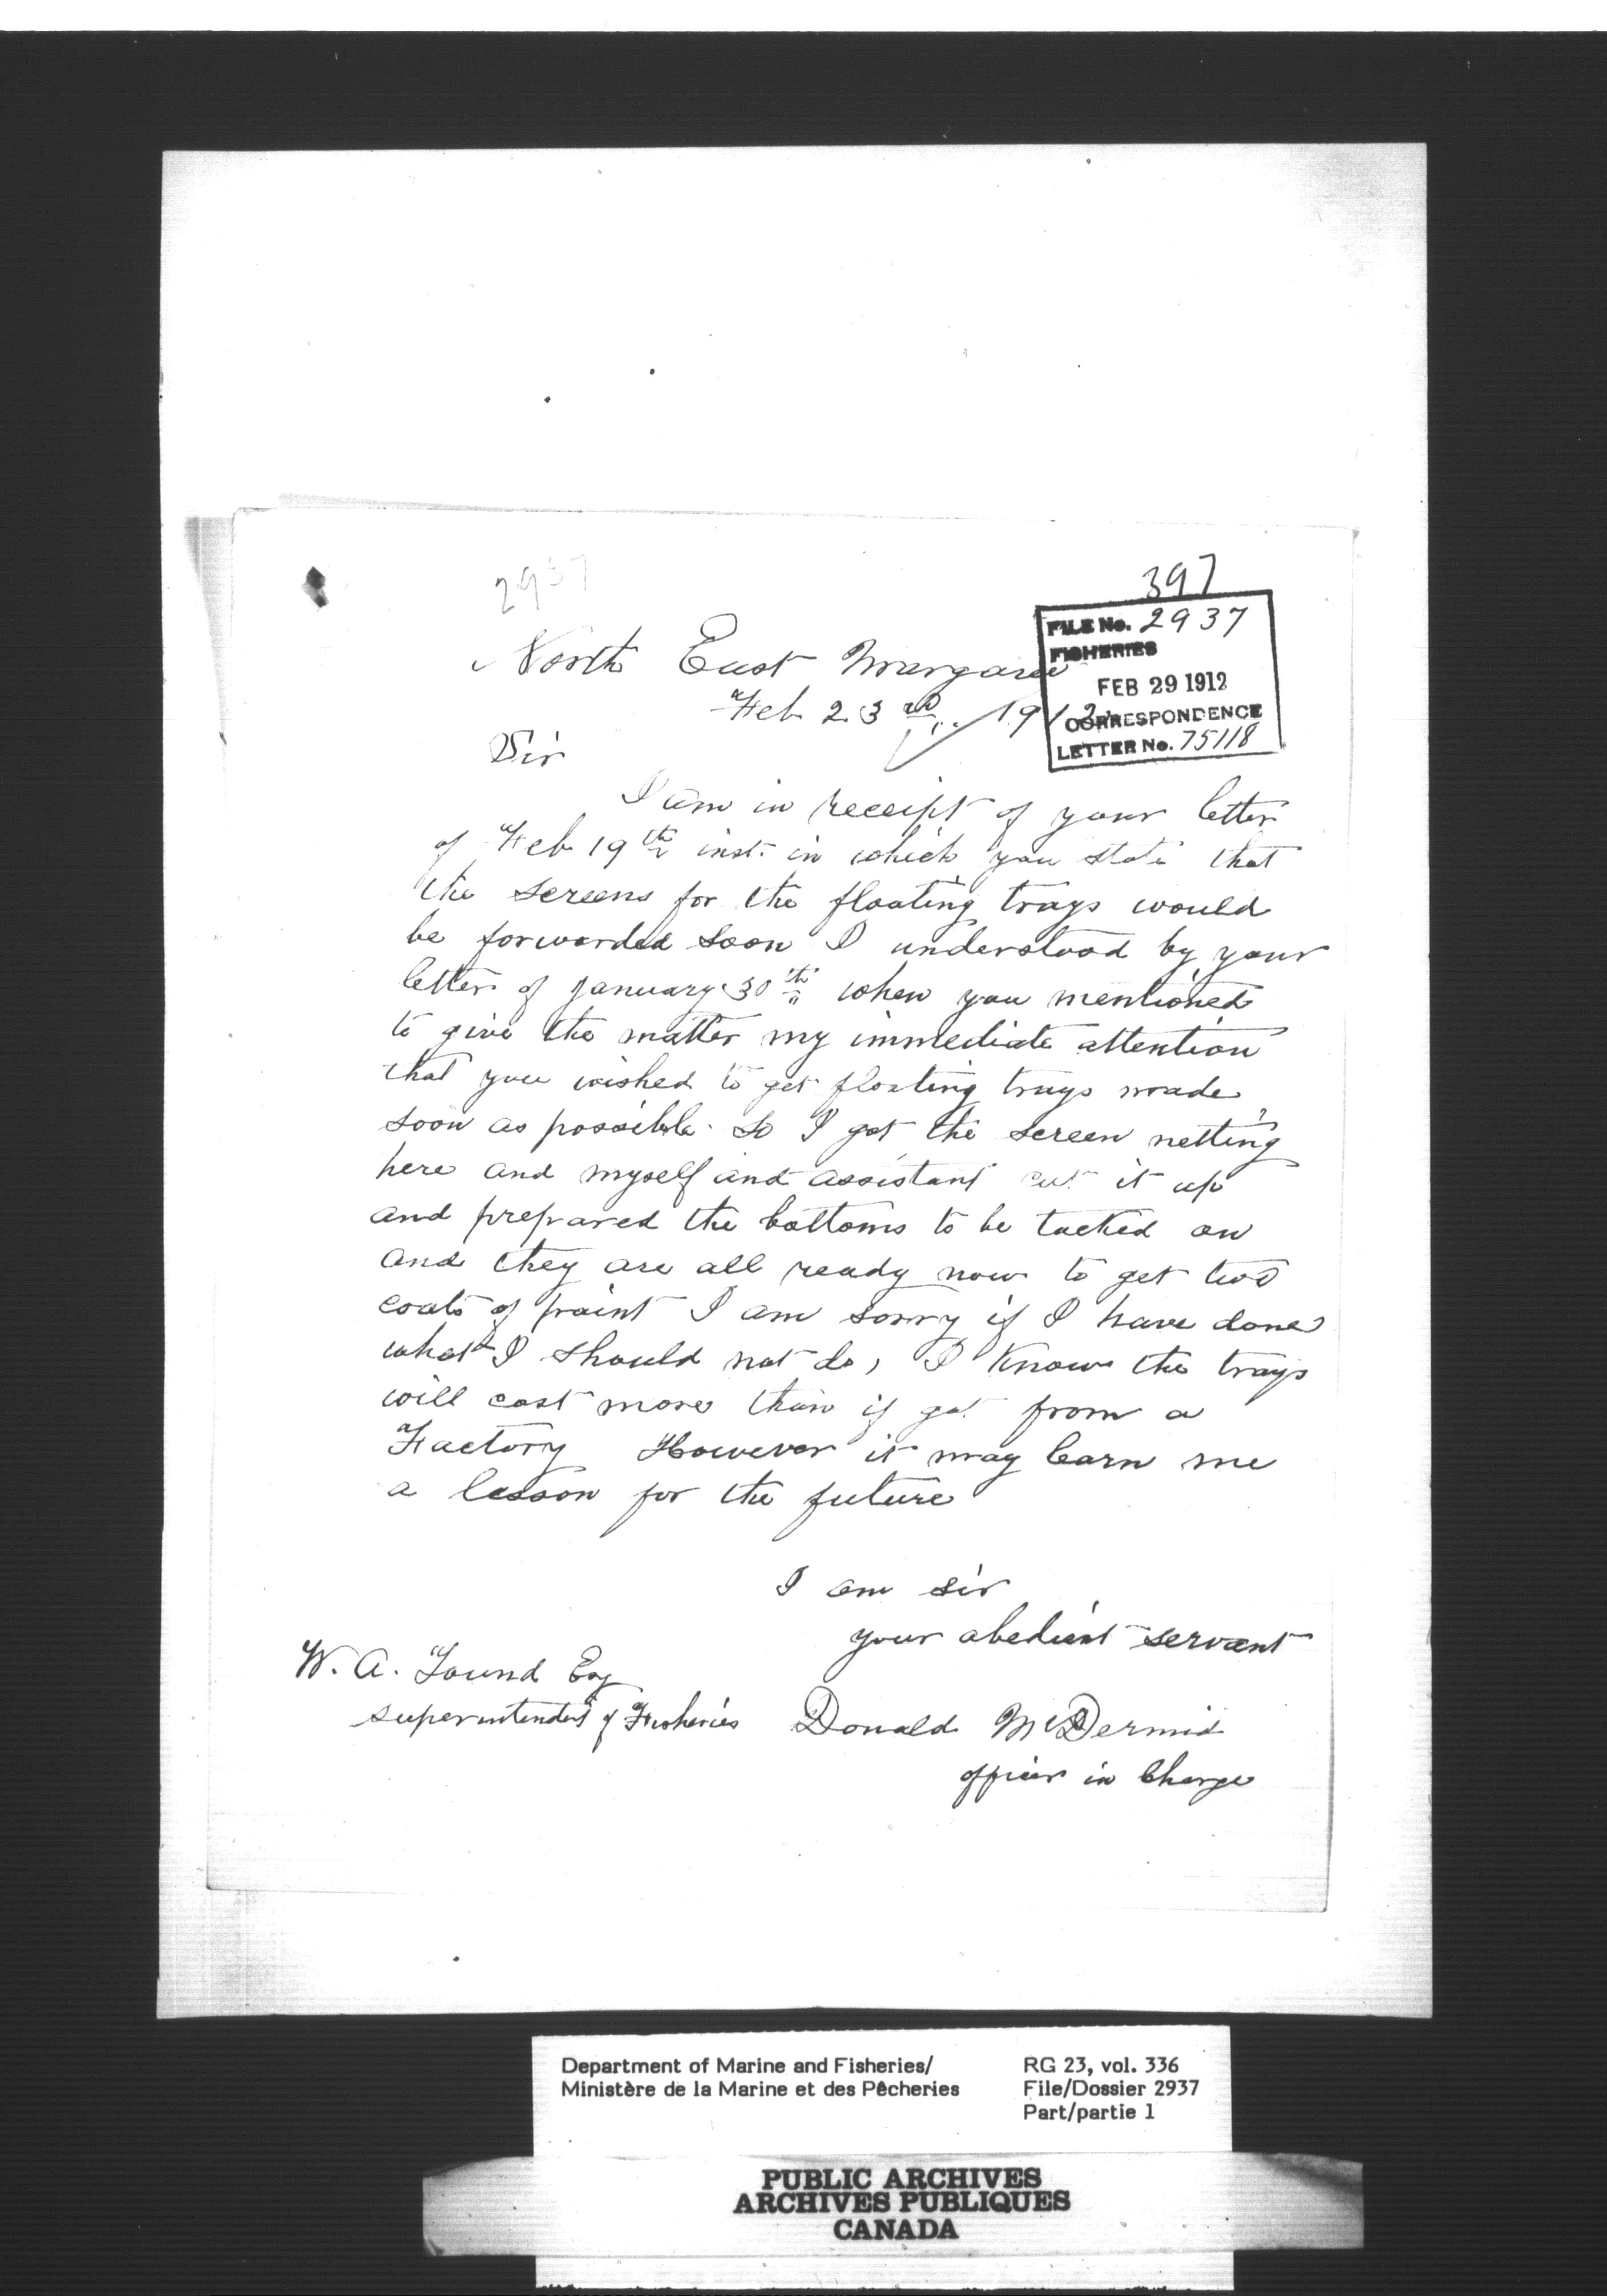 2937
397
FILE No. 2937
FISHERIES
FEB 29 1912
CORRESPONDENCE
LETTER No. 75118
North East Margaree
Feb 23rd 1912
Sir
I am in receipt of your letter
of Feb 19th inst. in which you state that
the screens for the floating trays would
be forwarded soon I understood by your
letter of January 30th when you mentioned
to give the matter my immediate attention
that you wished to get floating trays made
soon as possible. So I got the screen netting
here and myself and assistant cut it up
and prepared the bottoms to be tacked on
and they are all ready now to get two
coats of paint I am sorry if I have done
what I should not do, I know the trays
will cost more than if got from a
Factory However it may learn me
a lesson for the future
I am sir
your obedient servant
W. A. Found Esq
superintendent of Fisheries
Donald McDermid
officer in Charge
Department of Marine and Fisheries/
Ministère de la Marine et des Pêcheries
RG 23, vol. 336
File/Dossier 2937
Part/partie 1
PUBLIC ARCHIVES
ARCHIVES PUBLIQUES
CANADA